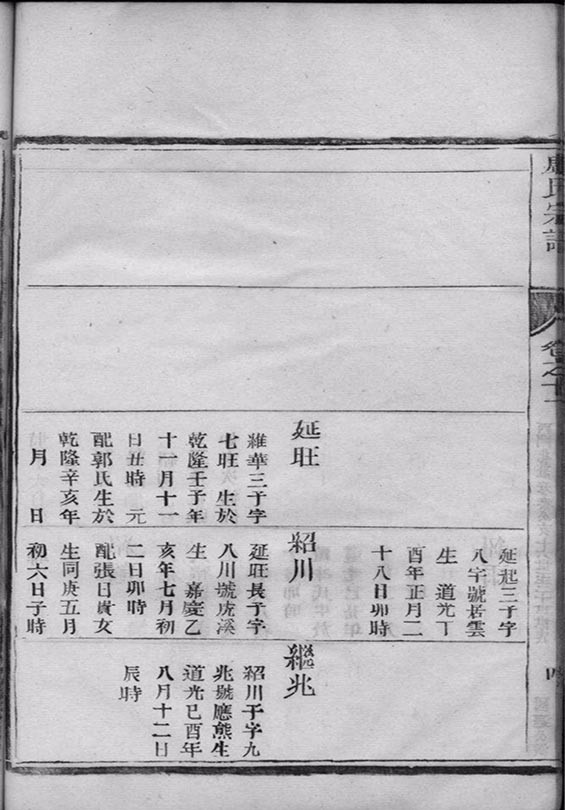 氏宗譜
卷之十一
四
延起三子字
八字號居雲
生道光丁
酉年正月二
十八日卯時
延旺
維華三子字
七旺生於
乾隆壬子年
十一月十一
日丑時元
配郭氏生於
乾隆辛亥年
月日
紹川
延旺長子字
八川號虎溪
生嘉慶乙
亥年七月初
二日卯時
配張日貞女
生同庚五月
初六日子時
繼兆
紹川子字九
兆號應熊生
道光己酉年
八月十二日
辰時